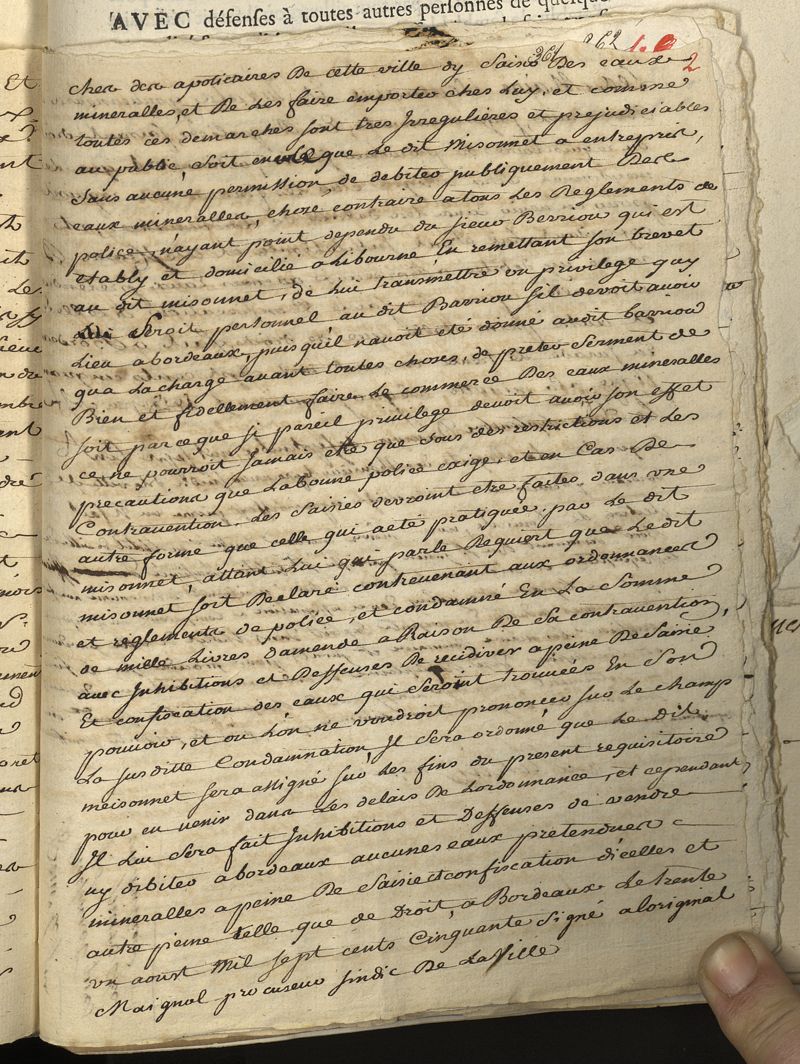 AVEC défenses à toutes autres personnes de quelque
361 362
2
cher des apoticaires De cette ville dy Saisir Des eaux
mineralles, et De Les faire emporter ches Luy, et comme
toutes ces demarches sont tres Irregulières et prejudiciables
au public, Soit que Le dit Misonnet a entrepris,
Sans aucune permission, de debiter publiquement Des
eaux mineralles, chose contraire a tous Les Reglements de
police, n'ayant point dependu du sieur Berriou qui est
etably et domicilié a Libourne En remettant Son brevet
au dit misonnet, de Lui transmettre un privilege quy
Seroit personnel au dit Barriou Sil devoit avoir
Lieu a bordeaux, puisqu'il n'avoit eté donné audit barriou
qua La charge avant toutes choses, de preter Serment de
Bien et fidellement faire Le commerce Des eaux mineralles
soit parce que si pareil privilege devoit avoir son effet
ce ne pourroit jamais etre que sous des restrictions et Les
precautions que La bonne police exige, et en Cas De
Contravention. Les Saisies devroint etre faites dans une
autre forme que celle qui a eté pratiquée par Le dit
misonnet, attant Lui qui parle Requiert que Le dit
misonnet soit Declaré contrevenant aux ordonnances
et reglements de police, et condamné En La Somme
de mille Livres d'amende a Raison De Sa contravention
avec Inhibitions et Deffenses De recidiver a peine De Saisie
Et confiscation des eaux qui Seroint trouvées En Son
pouvoir, et ou L'on ne voudroit prononcer sur Le champ
La susditte Condamnation Il Sera ordonné que Le Dit
meisonnet sera assigné sur Les fins du present requisitoire
pour en venir dans Les delais De L'ordonnance, et cependant
Il Lui Sera fait Inhibitions et Deffenses de vendre
ny debiter a bordeaux aucunes eaux pretendues
mineralles a peine De Saisie et confiscation d'icelles et
autre peine telle que de Droit, a Bordeaux Le trente
un aoust Mil Sept cents Cinquante Signé a loriginal
Maignol procureur Sindic De La Ville